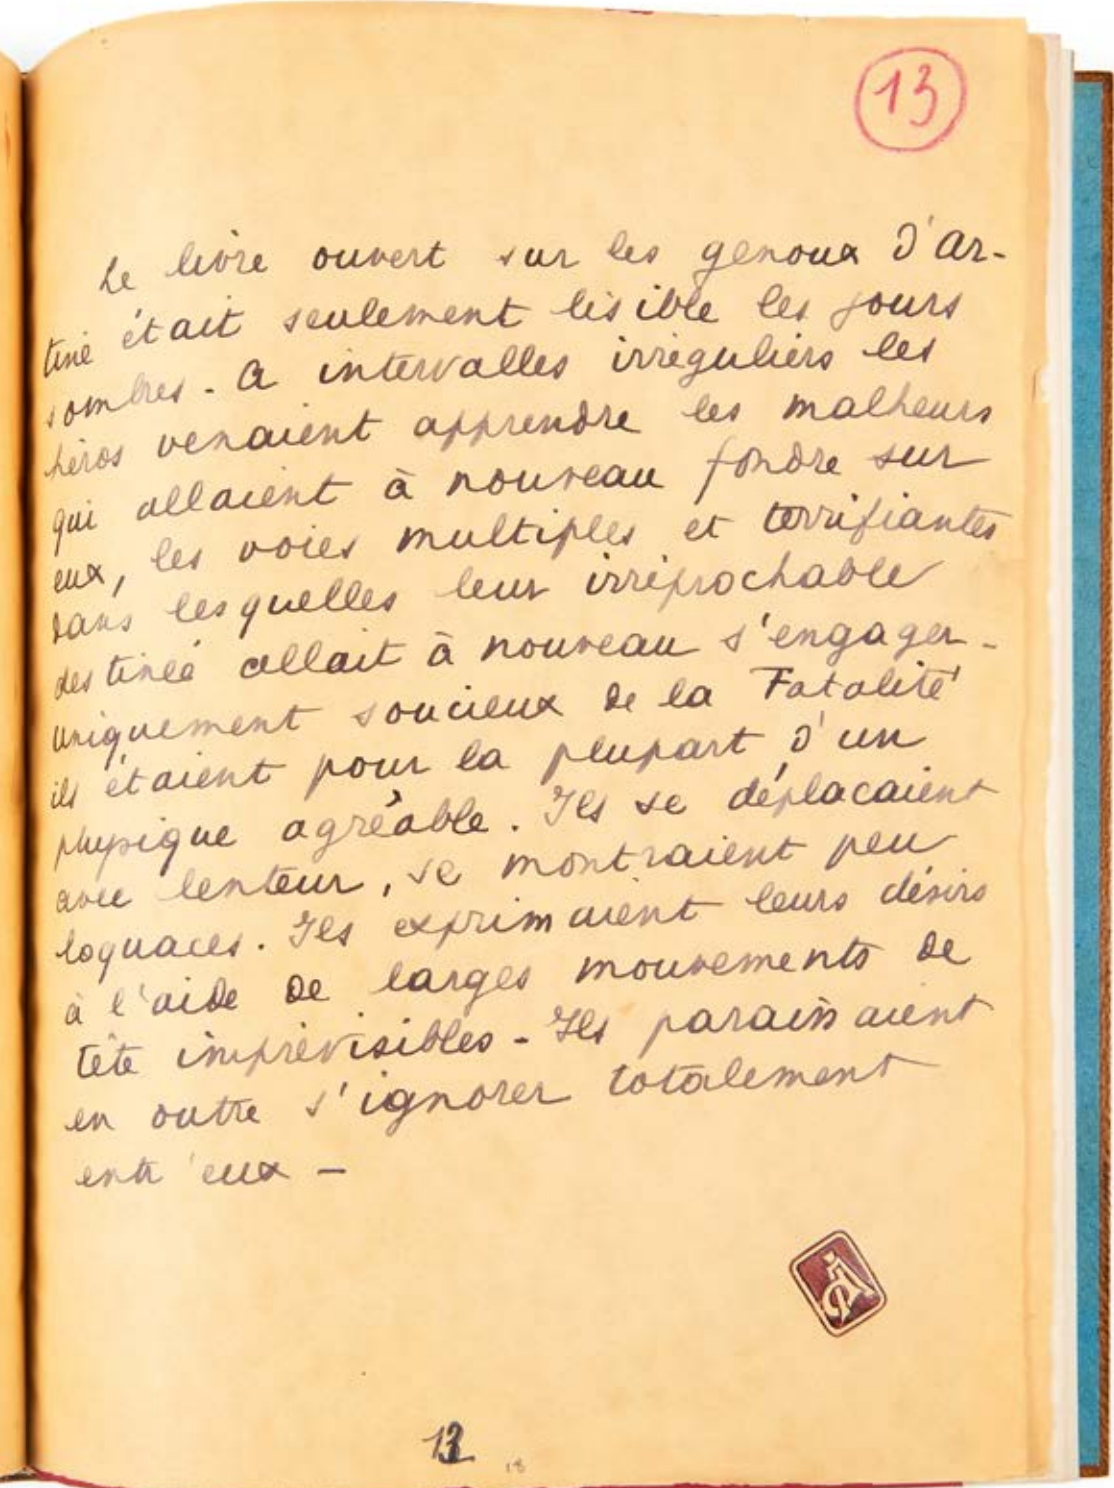 13
Le livre ouvert sur les genoux d'Ar-
tine était seulement lisible les jours
sombres - A intervalles irréguliers les
héros venaient apprendre les malheurs
qui allaient à nouveau fondre sur
eux, les voies multiples et terrifiantes
dans lesquelles leur irréprochable
destinée allait à nouveau s'engager -
uniquement soucieux de la Fatalité
ils étaient pour la plupart d'un
physique agréable. Ils se déplacaient
avec lenteur, se montraient peu
loquaces. Ils exprimaient leurs désirs
à l'aide de larges mouvements de
tête imprévisibles - Ils paraissaient
en outre s'ignorer totalement
entr'eux -
18